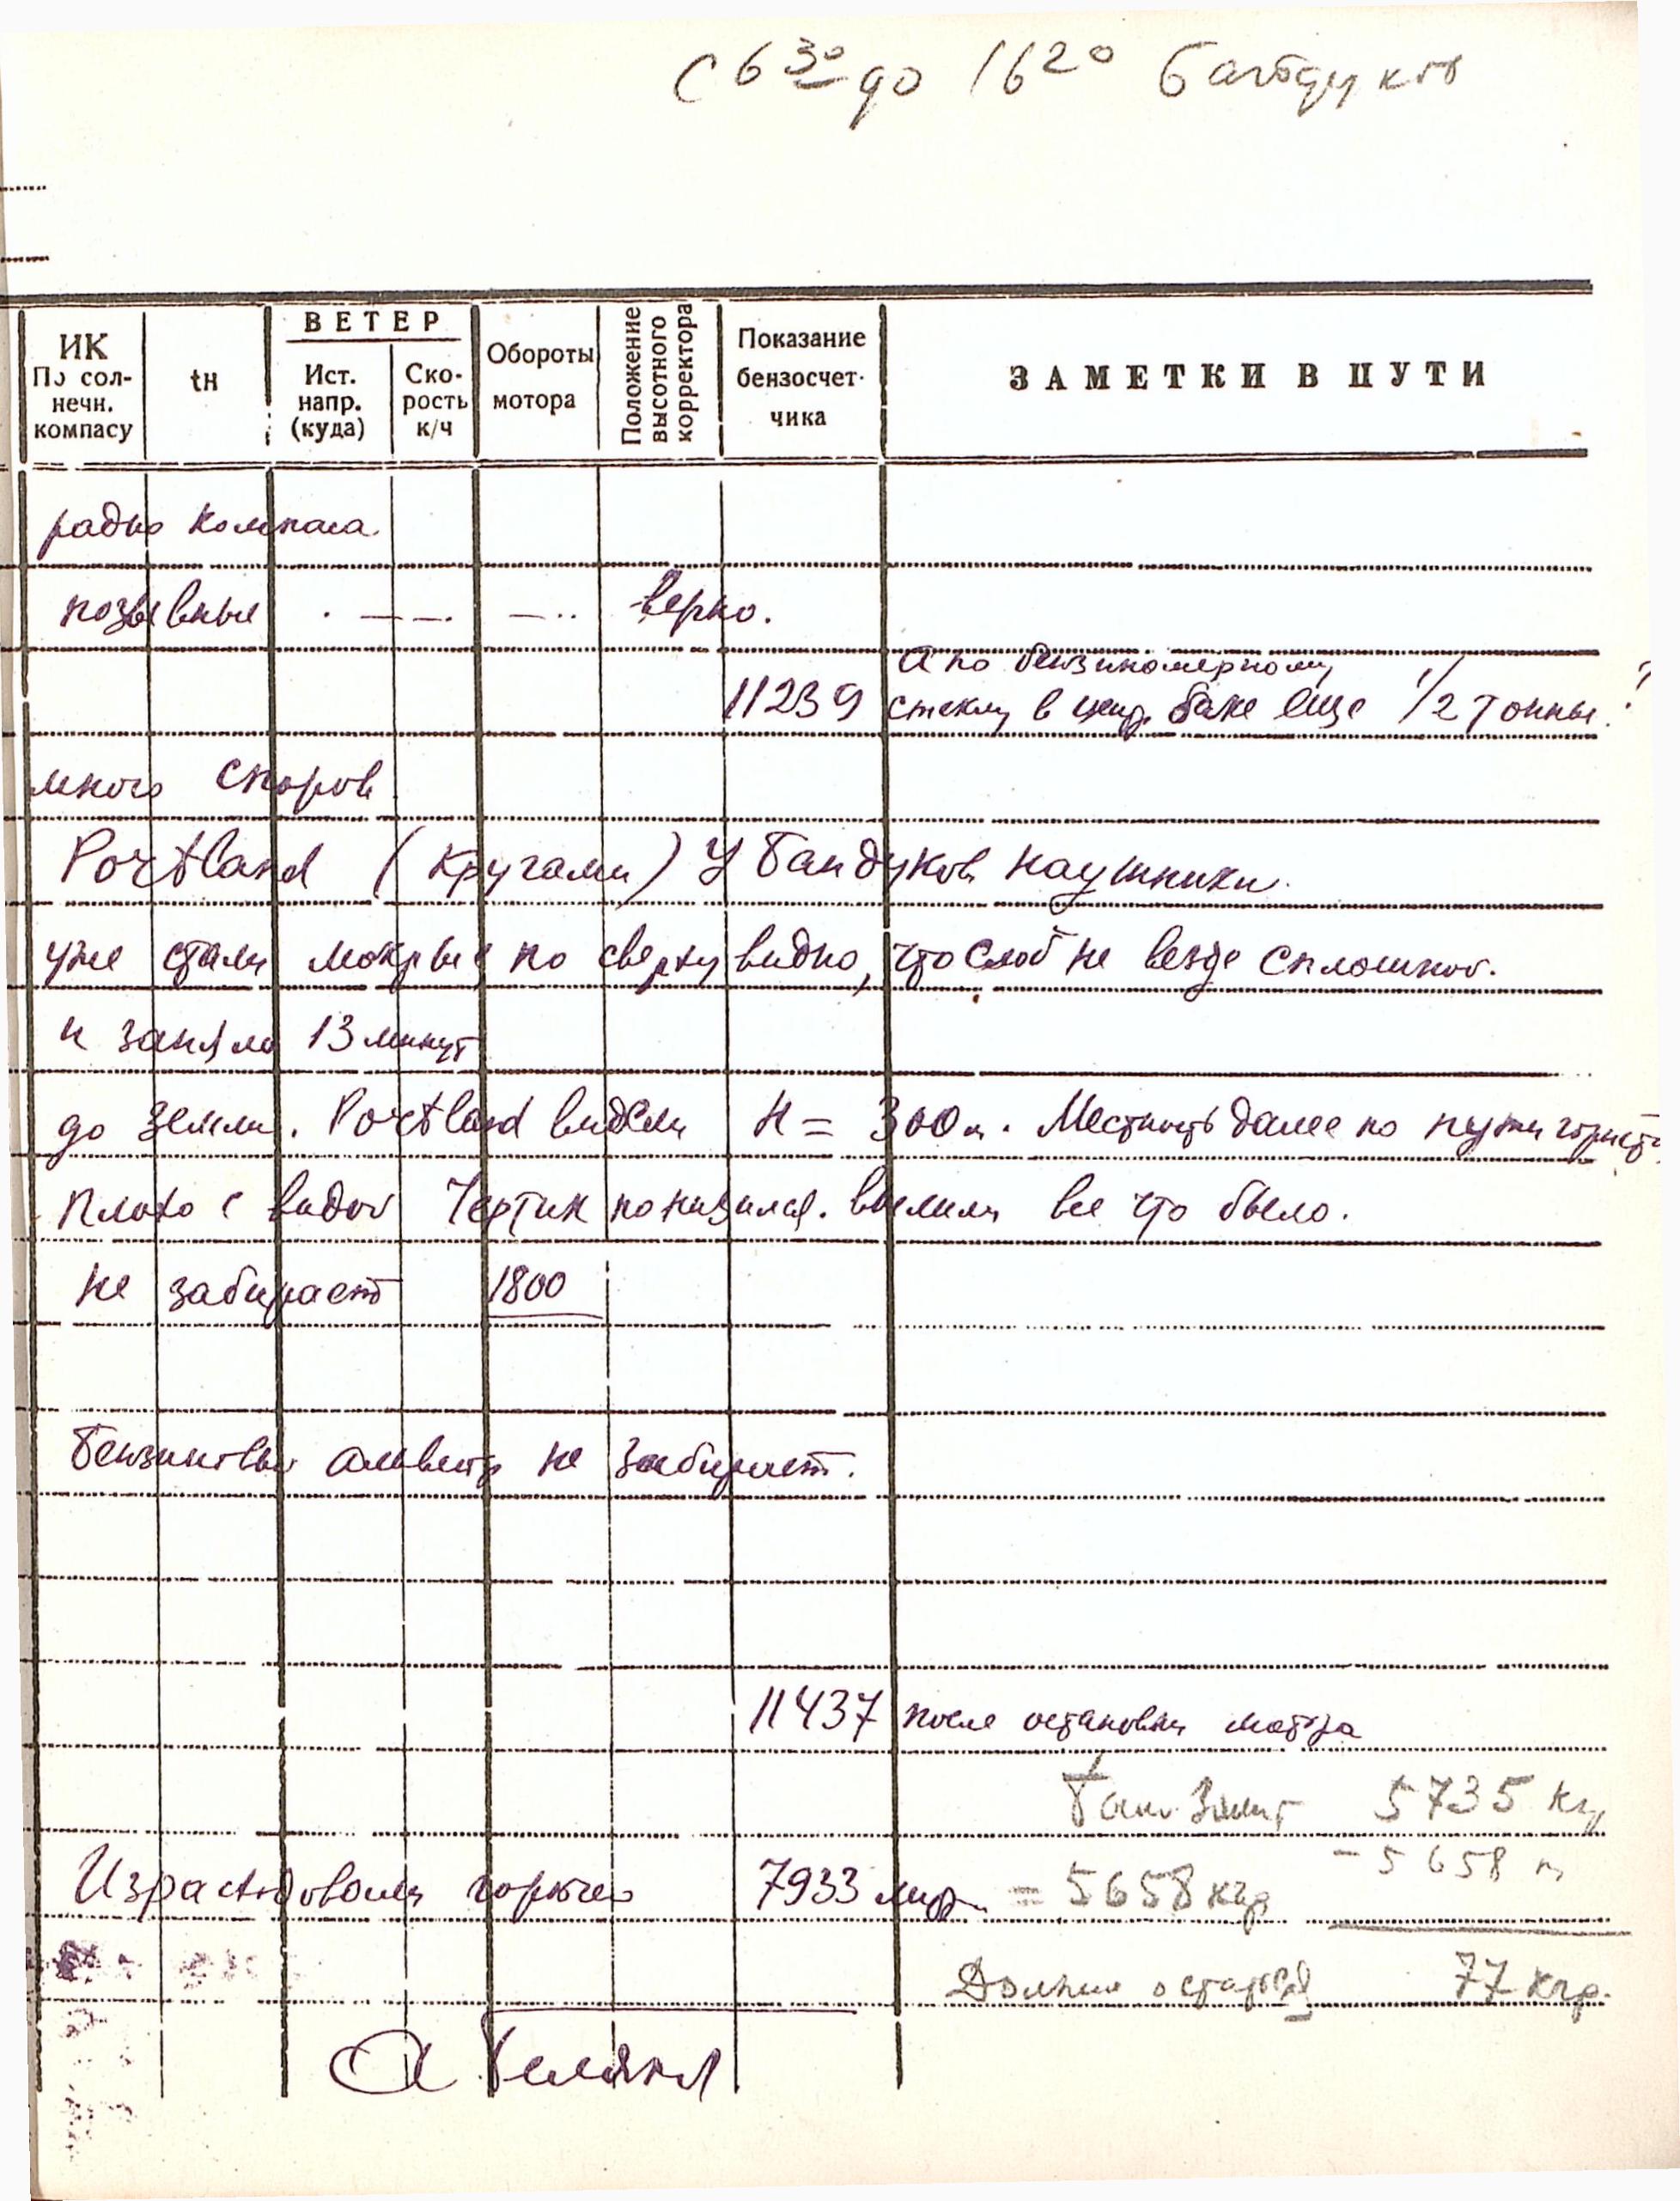 С 6 30 до 16 20 Байдуков
ИК
По сол-
нечн.
компасу
tн
ВЕТЕР
Ист.
напр.
(куда)
Ско-
рость
к/ч
Обороты
мотора
Положение
высотного
корректора
Показание
бензосчет-
чика
ЗАМЕТКИ В ПУТИ
радио компаса.
позывные . — — . — . . верно.
А по бензиномерному
11239 стеклу в центр. баке еще 1/2 тонны!?
много споров
Portland (кругами) У Байдуков наушники.
уже стали мокрые но сверху видно, что слой не везде сплошной.
и заняло 13 минут
до земли. Portland видели H = 300 м. Местность далее по пути гориста
плохо с водой Чертик понизился. вылили все что было.
не забирает 1800
Бензиновый альвеер не забирает.
11437 после остановки мотора
Бак. Залит 5735 кг
Израсходовали горючего 7933 литр. = 5658 кгр - 5658
Должно остаться 77 кгр.
А Беляков